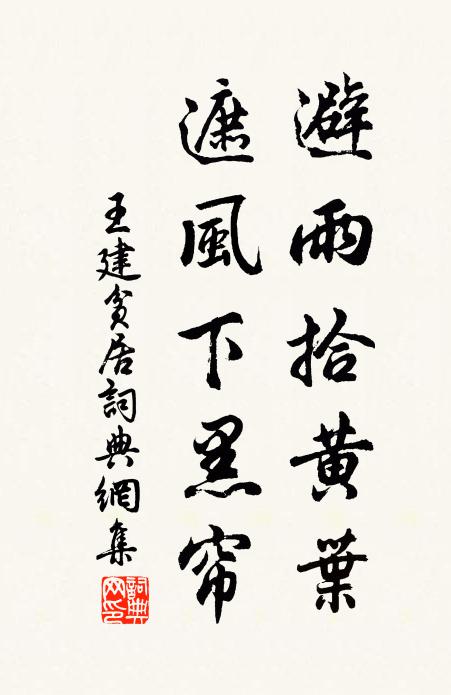 避雨拾黃葉
遮風下黑帘
王建貧居詞典網集
詞典網印